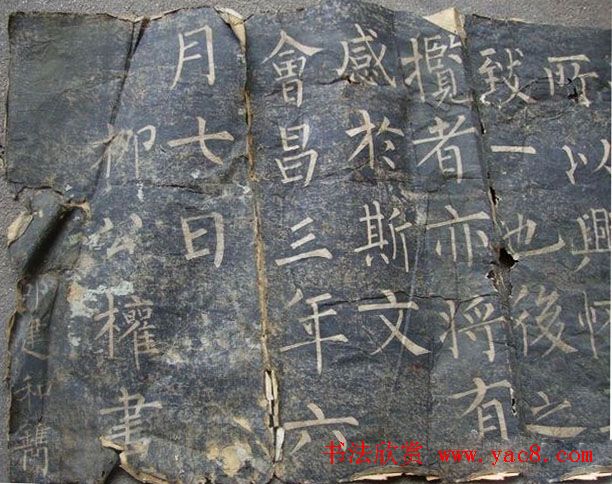 所以興怀
致一也後之
攬者亦将有
感於斯文
會昌三年六
月七日
柳公權書
邵建和鐫
书法欣赏 www.yac8.com